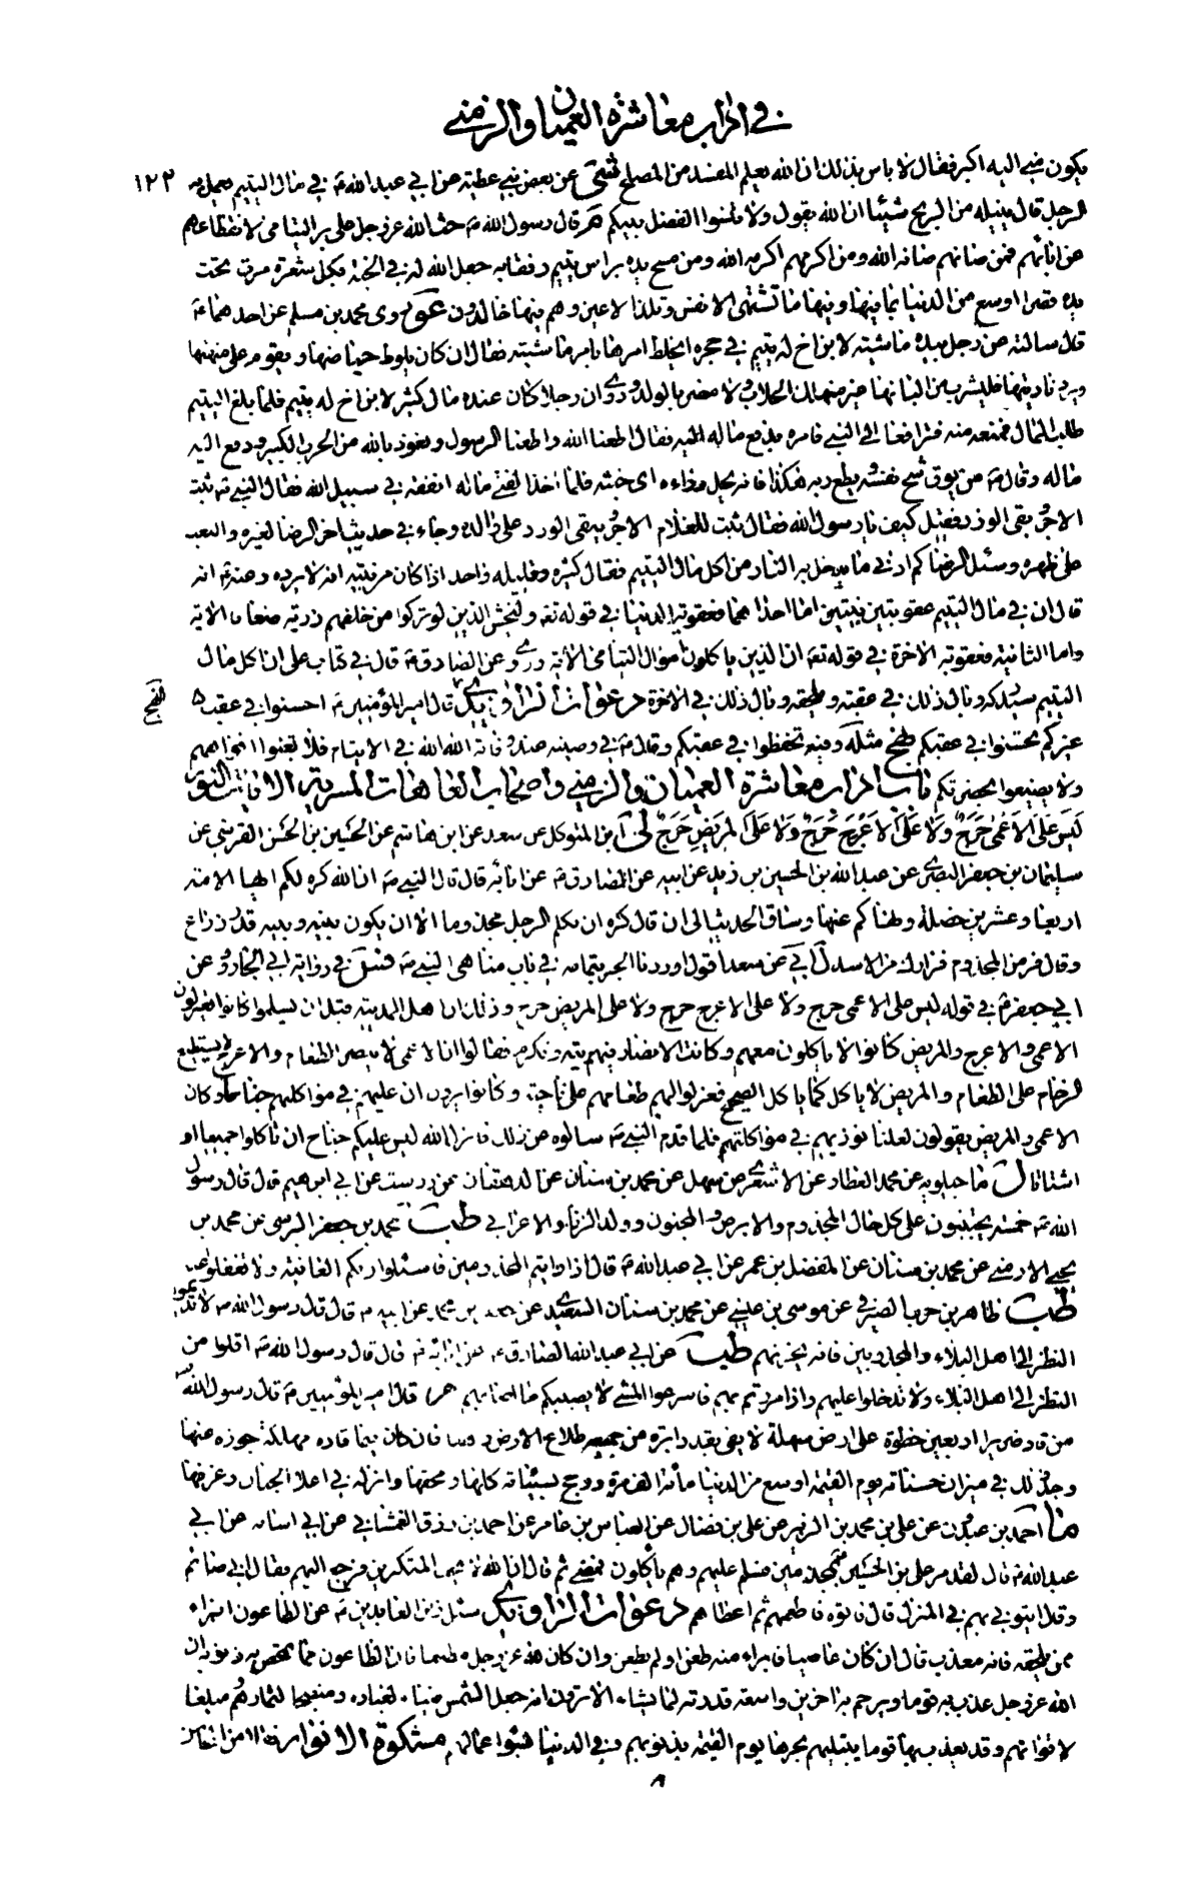 في اداب معاشرة العميان والزمنى
١٢٢
يكون منى اليه اكبر فقال لا باس بذلك ان الله يعلم المفسد من المصلح شى عن بعض بني عطية عن ابي عبد الله ع في مال اليتيم يعمل به
الرجل قال ينيله من الربح شيئا ان الله يقول ولا تنسوا الفضل بينكم قال رسول الله ص حث الله عز وجل على بر اليتامى لانقطاعهم
عن ابائهم فمن صانهم صانه الله ومن اكرمهم اكرمه الله ومن مسح يده براس يتيم رفقا به جعل الله له في الجنة بكل شعرة مرت تحت
يده قصرا اوسع من الدنيا بما فيها وفيها ما تشتهى الانفس وتلذ الاعين وهم فيها خالدون روى محمد بن مسلم عن احدهما ع
قال سالته عن رجل بيده ماشية لابن اخ له يتيم في حجره ايخلط امرها بامر ماشيته فقال ان كان يلوط حياضها ويقوم على مهنتها
ويرد نادتها فليشرب من البانها غير منهك الحلاب ولا مضر بالولد وروي ان رجلا كان عنده مال كثير لابن اخ له يتيم فلما بلغ اليتيم
طلب المال فمنعه منه فترافعا الى النبي فامره بدفع ماله اليه فقال اطعنا الله واطعنا الرسول ونعوذ بالله من الحوب الكبير ودفع اليه
ماله وقال ص من يوق شح نفسه ويطع ربه هكذا فانه يحل داره اى جنته فلما اخذ الفتى ماله انفقه في سبيل الله فقال النبي ص ثبت
الاجر وبقى الوزر فقيل كيف يا رسول الله فقال ثبت للغلام الاجر ويبقى الوزر على والده وجاء في حديث اخر الرضا لغيره والتعب
على ظهره وسئل الرضا كم ادنى ما يدخل به النار من اكل مال اليتيم فقال كثيره وقليله واحد اذا كان من نيته انه لا يرده وعنه ع انه
قال ان في مال اليتيم عقوبتين بينتين اما احداهما فعقوبة الدنيا في قوله تع وليخش الذين لو تركوا من خلفهم ذرية ضعافا الاية
واما الثانية فعقوبة الاخرة في قوله تع ان الذين ياكلون اموال اليتامى الاية وروي عن الصادق ع قال في كتاب على ان اكل مال
اليتيم سيدركه وبال ذلك في عقبه ويلحقه وبال ذلك في الاخرة دعوات الراوندي قال امير المؤمنين ع احسنوا في عقب
غيركم تحسنوا في عقبكم نهج مثله وفيه تحفظوا في عقبكم وقال ع في وصيته عند وفاته الله الله في الايتام فلا تغبوا افواههم
ولا يضيعوا بحضرتكم باب اداب معاشرة العميان والزمنى واصحاب العاهات المسرية الايات النور
ليس على الاعمى حرج ولا على الاعرج حرج ولا على المريض حرج لى ابن المتوكل عن سعد عن ابن هاشم عن الحسين بن الحسن القرشي عن
سليمان بن جعفر البصري عن عبد الله بن الحسين بن زيد عن ابيه عن الصادق ع عن ابائه قال قال النبي ص ان الله كره لكم ايها الامة
اربعا وعشرين خصلة ونهاكم عنها وساق الحديث الى ان قال كره ان يكلم الرجل مجذوما الا ان يكون بينه وبينه قدر ذراع
وقال فر من المجذوم فرارك من الاسد ل ابي عن سعد اقول اوردنا الخبر بتمامه في باب مناهى النبي ص فس في رواية ابي الجارود عن
ابي جعفر ع في قوله ليس على الاعمى حرج ولا على الاعرج حرج ولا على المريض حرج وذلك ان اهل المدينة قبل ان يسلموا كانوا يعزلون
الاعمى والاعرج والمريض كانوا لا ياكلون معهم وكانت الانصار فيهم تيه وتكرم فقالوا ان الاعمى لا يبصر الطعام والاعرج لا يستطيع
الزحام على الطعام والمريض لا ياكل كما ياكل الصحيح فعزلوا لهم طعامهم على ناحية وكانوا يرون ان عليهم في مؤاكلتهم جناحا وكان
الاعمى والمريض يقولون لعلنا نؤذيهم في مؤاكلتهم فلما قدم النبي ص سالوه عن ذلك فانزل الله ليس عليكم جناح ان تاكلوا جميعا او
اشتاتا ل ماجيلويه عن محمد العطار عن الاشعري عن سهل عن محمد بن سنان عن الدهقان عن درست عن ابي ابراهيم قال قال رسول
الله ص خمسة يجتنبون على كل حال المجذوم والابرص والمجنون وولد الزنا والاعرابي طب محمد بن جعفر البرسى عن محمد بن
يحيى الارمنى عن محمد بن سنان عن المفضل بن عمر عن ابي عبد الله ع قال اذا رايتم المجذومين فاسئلوا ربكم العافية ولا تغفلوا عنه
طب طاهر بن حرب الصيرفي عن موسى بن عيسى عن محمد بن سنان السعيدي عن عن ابيه ع قال قال رسول الله ص لا تديموا
النظر الى اهل البلاء والمجذوبين فانه يحزنهم طب عن ابي عبد الله الصادق ع عن ابائه ع قال قال رسول الله ص اقلوا من
النظر الى اهل البلاء ولا تدخلوا عليهم واذا مررتم بهم فاسرعوا المشى لا يصيبكم ما اصابهم قال امير المؤمنين ع قال رسول الله ص
من قاد ضريرا اربعين خطوة على ارض سهلة لا يفى بقدر ابرة من جميعه طلاع الارض ذهبا فان كان فيما قاده مهلكة جوزه عنها
وجد ذلك في ميزان حسناته يوم القيمة اوسع من الدنيا مائة الف مرة ورجح بسيئاته كلها ومحقها وانزله في اعلا الجنان وغرفها
ما احمد بن عبدون عن علي بن محمد بن الزبير عن علي بن فضال عن العباس بن عامر عن احمد بن رزق الغمشاني عن ابي اسامة عن ابي
عبد الله ع قال لقد مر علي بن الحسين بمجذومين فسلم عليهم وهم ياكلون فمضى ثم قال ان الله لا يحب المتكبرين فرجع اليهم فقال اني صائم
وقال ايتوني بهم في المنزل قال فاتوه فاطعمهم ثم اعطاهم دعوات الراوندي سئل زين العابدين ع عن الطاعون انبراء
ممن يلحقه فانه معذب قال ان كان عاصيا فابراء منه طعن او لم يطعن وان كان لله عز وجل مطيعا فان الطاعون مما يمحص به ذنوبه ان
الله عز وجل عذب به قوما ويرحم به اخرين واسعة قدرته لما يشاء الا ترون انه جعل الشمس ضياء لعباده ومنضجا لثمارهم ومبلغا
لاقواتهم وقد يعذب بها قوما يبتليهم بحرها يوم القيمة بذنوبهم وفي الدنيا بسوء اعمالهم مشكوة الانوار